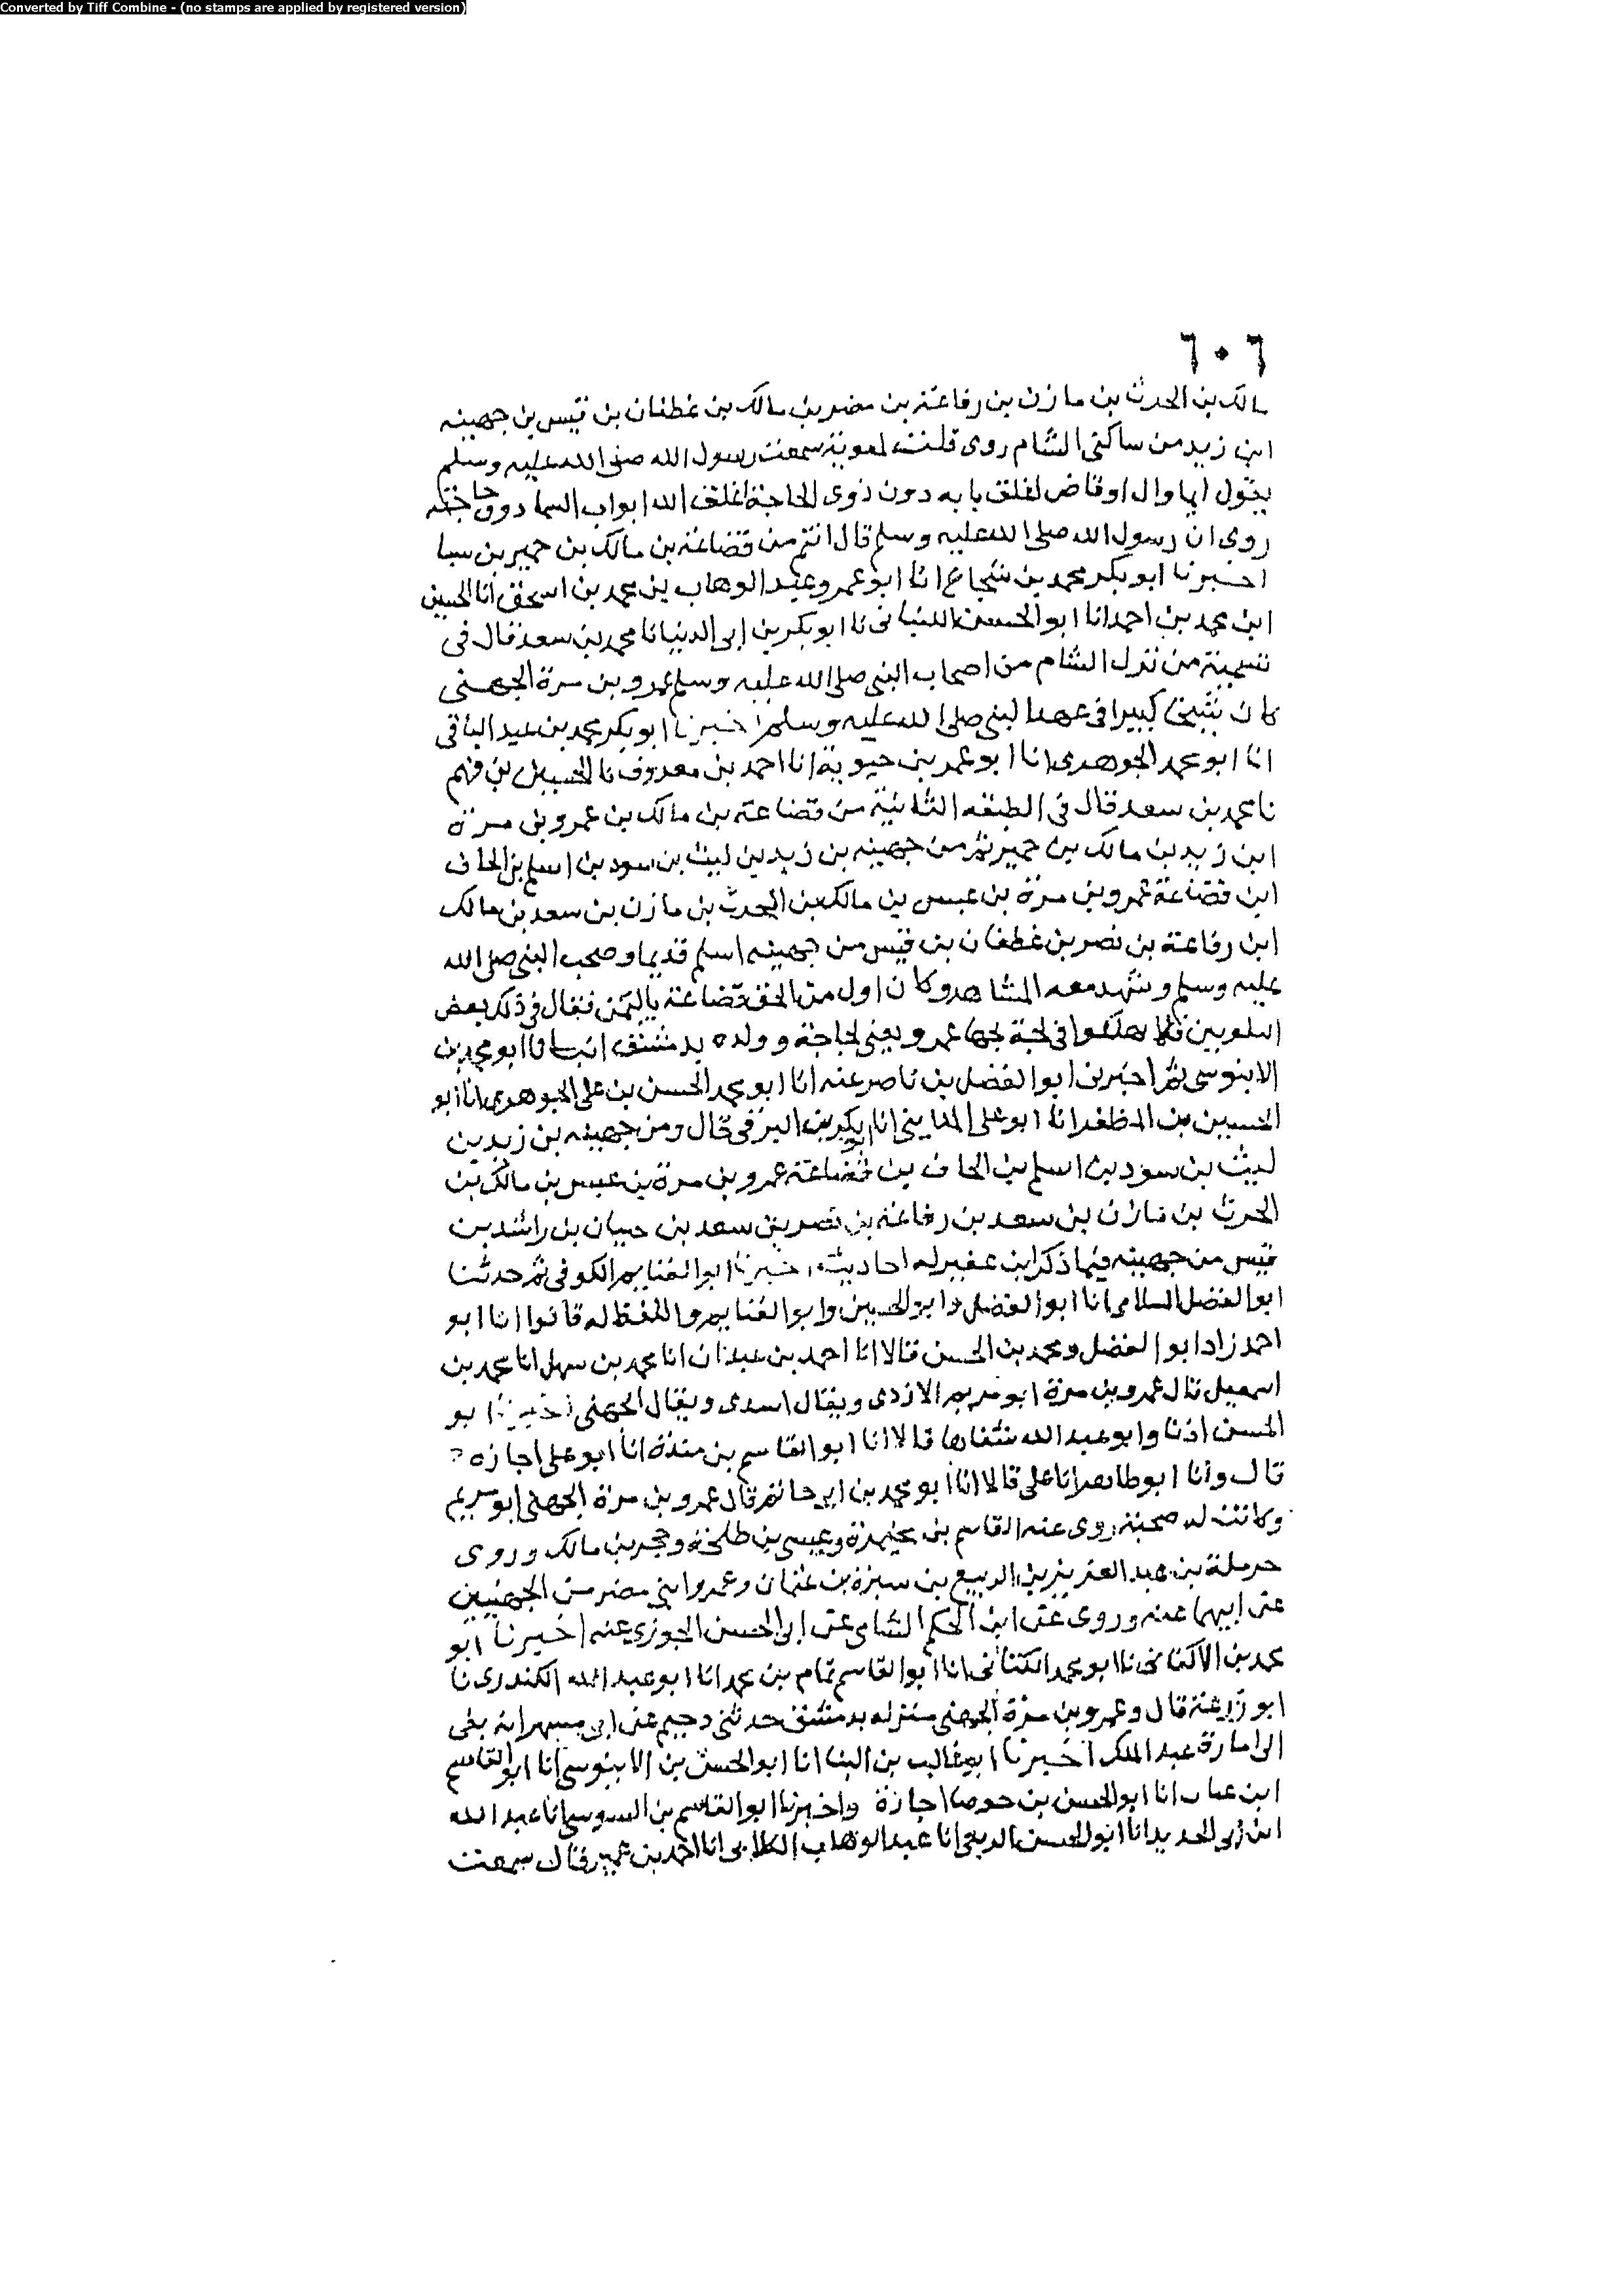 Converted by Tiff Combine - (no stamps are applied by registered version)
٦٠٦
مالك بن الحرث بن مازن بن رفاعة بن مضر بن مالك بن غطفان بن قيس بن جهينه
ابن زيد من ساكني الشام روى قلت لمعوية سمعت رسول الله صلى الله عليه وسلم
يقول ايما وال او قاض اغلق بابه دون ذوى الحاجة اغلق الله ابواب السما دون حاجته
روى ان رسول الله صلى الله عليه وسلم قال انتم من قضاعة بن مالك بن حمير بن سبا
اخبرنا ابو بكر محمد بن شجاع انا ابو عمرو عبد الوهاب بن محمد بن اسحق انا الحسين
ابن محمد بن احمد انا ابو الحسن اللنبانى نا ابو بكر بن ابى الدنيا نا محمد بن سعد قال في
تسمية من نزل الشام من اصحاب النبي صلى الله عليه وسلم عمرو بن مرة الجهني
كان شيخا كبيرا في عهد النبي صلى الله عليه وسلم اخبرنا ابو بكر محمد بن عبد الباقي
انا ابو محمد الجوهرى انا ابو عمر بن حيوية انا احمد بن معروف نا الحسين بن فهم
نا محمد بن سعد قال في الطبقه الثانية من قضاعة بن مالك بن عمرو بن مرة
ابن زيد بن مالك بن حمير ثم من جهينه بن زيد بن ليث بن سود بن اسلم بن الحاف
ابن قضاعة عمرو بن مرة بن عبس بن مالك بن الحرث بن مازن بن سعد بن مالك
ابن رفاعة بن نصر بن غطفان بن قيس من جهينه اسلم قديما وصحب النبي صلى الله
عليه وسلم وشهد معه المشاهد وكان اول من الحق قضاعة باليمن فقال في ذلك بعض
البلويين فلا تهلكوا في لجة لجها عمرو يعني لجاجة وولده بدمشق انبانا ابو محمد بن
الابنوسى ثم اخبرنى ابو الفضل بن ناصر عنه انا ابو محمد الحسن بن على الجوهرى انا ابو
الحسين بن المظفر انا ابو على المدايني انا ابو بكر بن البرقي قال ومن جهينه بن زيد بن
ليث بن سود بن اسلم بن الحاف بن قضاعة عمرو بن مرة بن عبس بن مالك بن
الحرث بن مازن بن سعد بن رفاعة بن نصر بن سعد بن حبيان بن راشد بن
قيس من جهينه فيما ذكر ابن عفير له احاديث اخبرنا ابو الغنايم الكوفي ثم حدثنا
ابو الفضل السلامى انا ابو الفضل وابو الحسين وابو الغنايم واللفظ له قالوا انا ابو
احمد زاد ابو الفضل ومحمد بن الحسن قالا انا احمد بن عبدان انا محمد بن سهل انا محمد بن
اسمعيل قال عمرو بن مرة ابو مريم الازدى ويقال اسدى ويقال الجهني اخبرنا ابو
الحسن اذنا وابو عبد الله شفاها قالا انا ابو القاسم بن مندة انا ابو على اجازه ح
قال وانا ابو طاهر انا على قالا انا ابو محمد بن ابى حاتم قال عمرو بن مرة الجهني ابو مريم
وكانت له صحبة روى عنه القاسم بن مخيمرة وعيسى بن طلحة وحجر بن مالك وروى
حرملة بن عبد العزيز بن الربيع بن سبرة بن عثمان وعمرو ابني مضر من الجهنيين
عن ابيهما عنه وروى عن ابن الحكم الشامى عن ابى الحسن الجوزى عنه اخبرنا ابو
محمد بن الاكفانى نا ابو محمد الكتانى انا ابو القاسم تمام بن محمد انا ابو عبد الله الكندى نا
ابو زرعة قال وعمرو بن مرة الجهني منزله بدمشق حدثني دحيم عن ابى مسهر انه بقى
الى امارة عبد الملك اخبرنا ابو غالب بن البنا انا ابو الحسن بن الابنوسى انا ابو القاسم
ابن عتاب انا ابو الحسن بن حوصا اجازة واخبرنا ابو القاسم بن السوسى انا عبد الله
ابن ابى الحديد انا ابو الحسن الربعى انا عبد الوهاب الكلابى انا احمد بن عمير قال سمعت